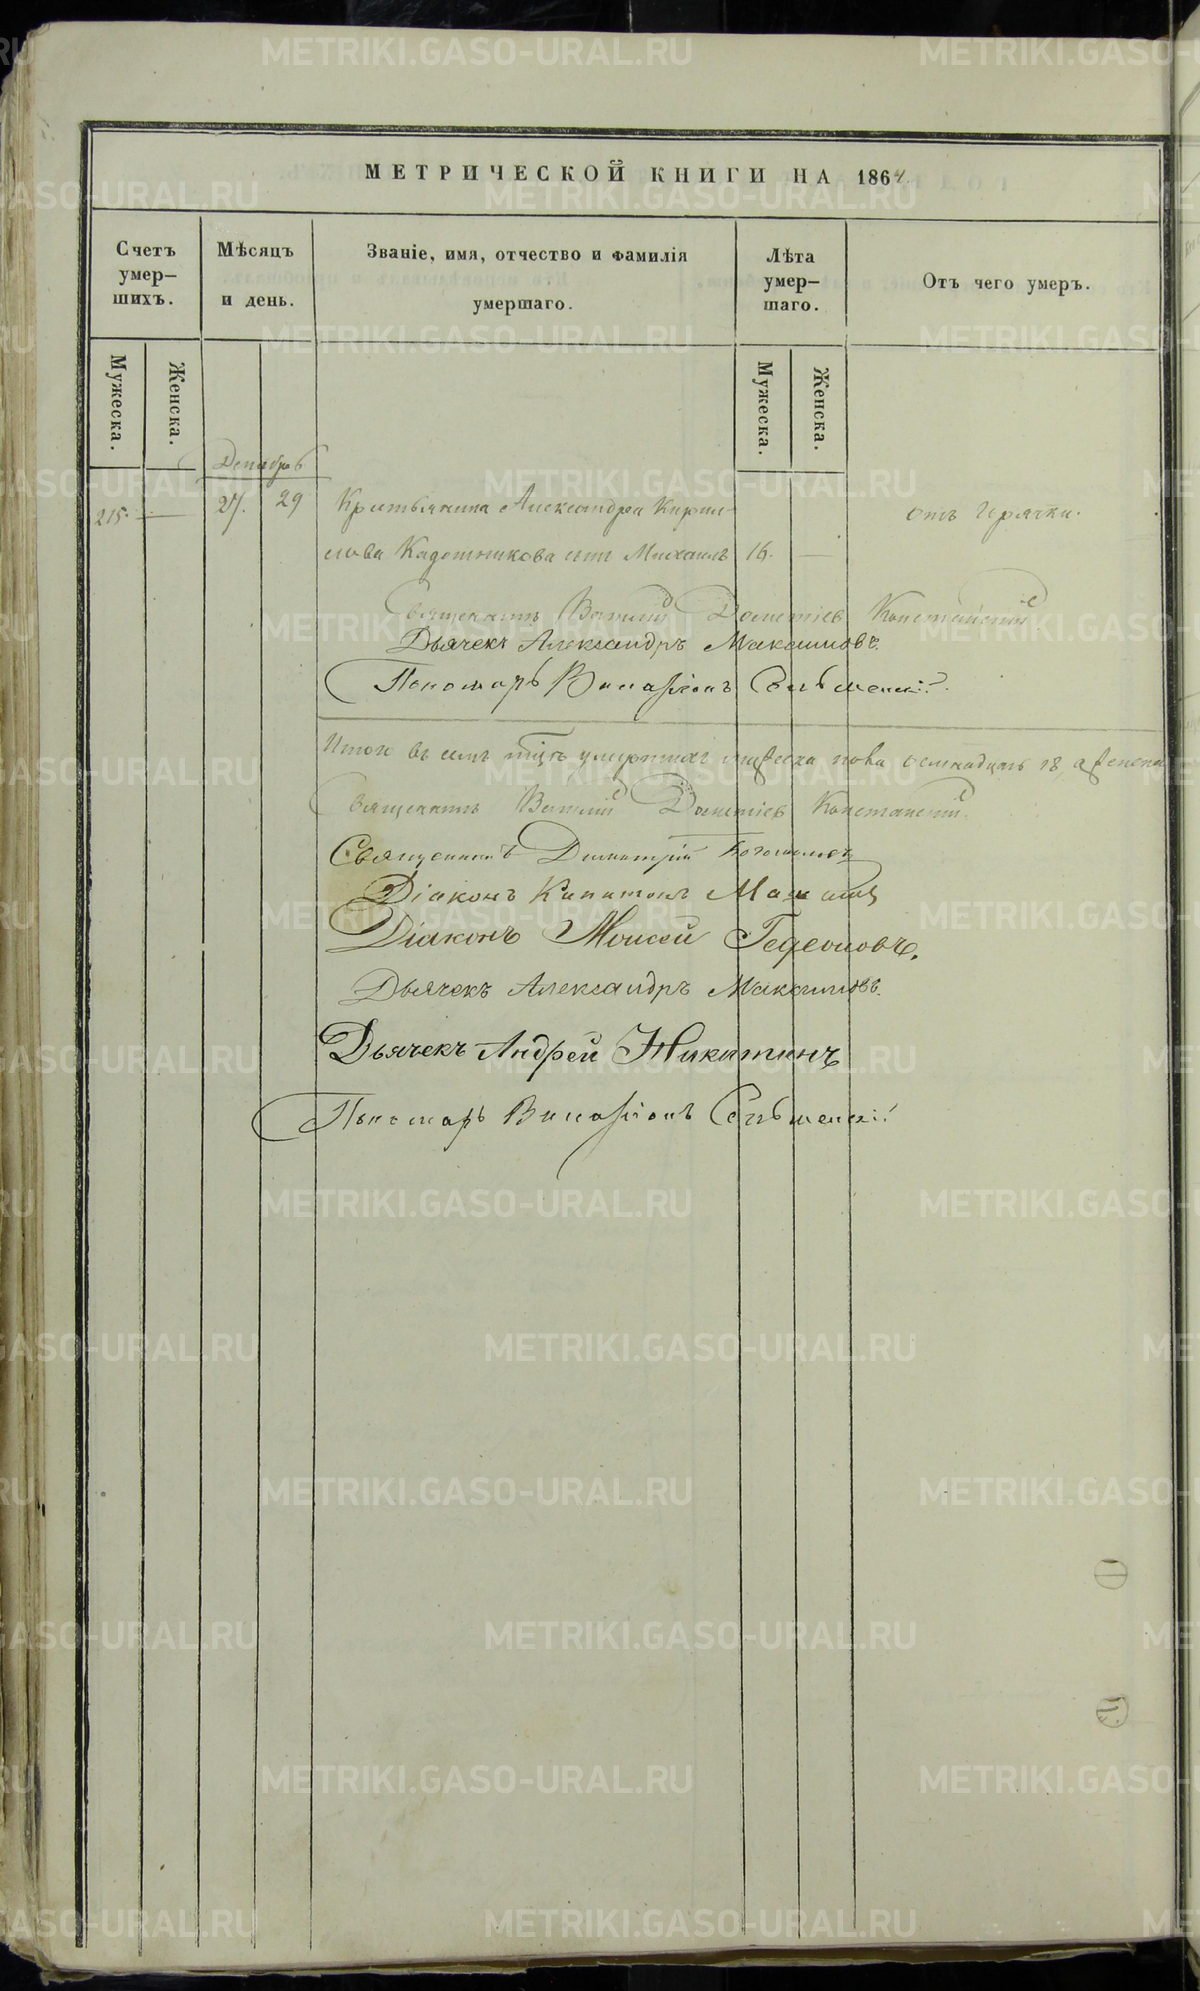 МЕТРИЧЕСКОЙ КНИГИ НА 1864
Счетъ умер-шихъ.
Мѣсяцъ и день.
Званіе, имя, отчество и фамилія умершаго.
Лѣта умер-шаго.
Отъ чего умеръ.
Мужеска.
Женска.
Мужеска.
Женска.
Декабрь
215. 27. 29 Крестьянина Александра Кирил-
лова Кадошникова сынъ Михаилъ 16. отъ Горячки.
Священникъ Василій Дометіев
Дьячекъ Александръ Максимовъ.
Пономарь Виссаріонъ
Итого въ семъ умершихъ мужеска пола
Священникъ Василій Дометіевъ
Священникъ Димитрій
Діаконъ Капитонъ
Діаконъ Моисей Гедеоновъ.
Дьячекъ Александръ Максимовъ.
Дьячекъ Андрей Никитинъ
Пономарь Виссаріонъ
METRIKI.GASO-URAL.RU